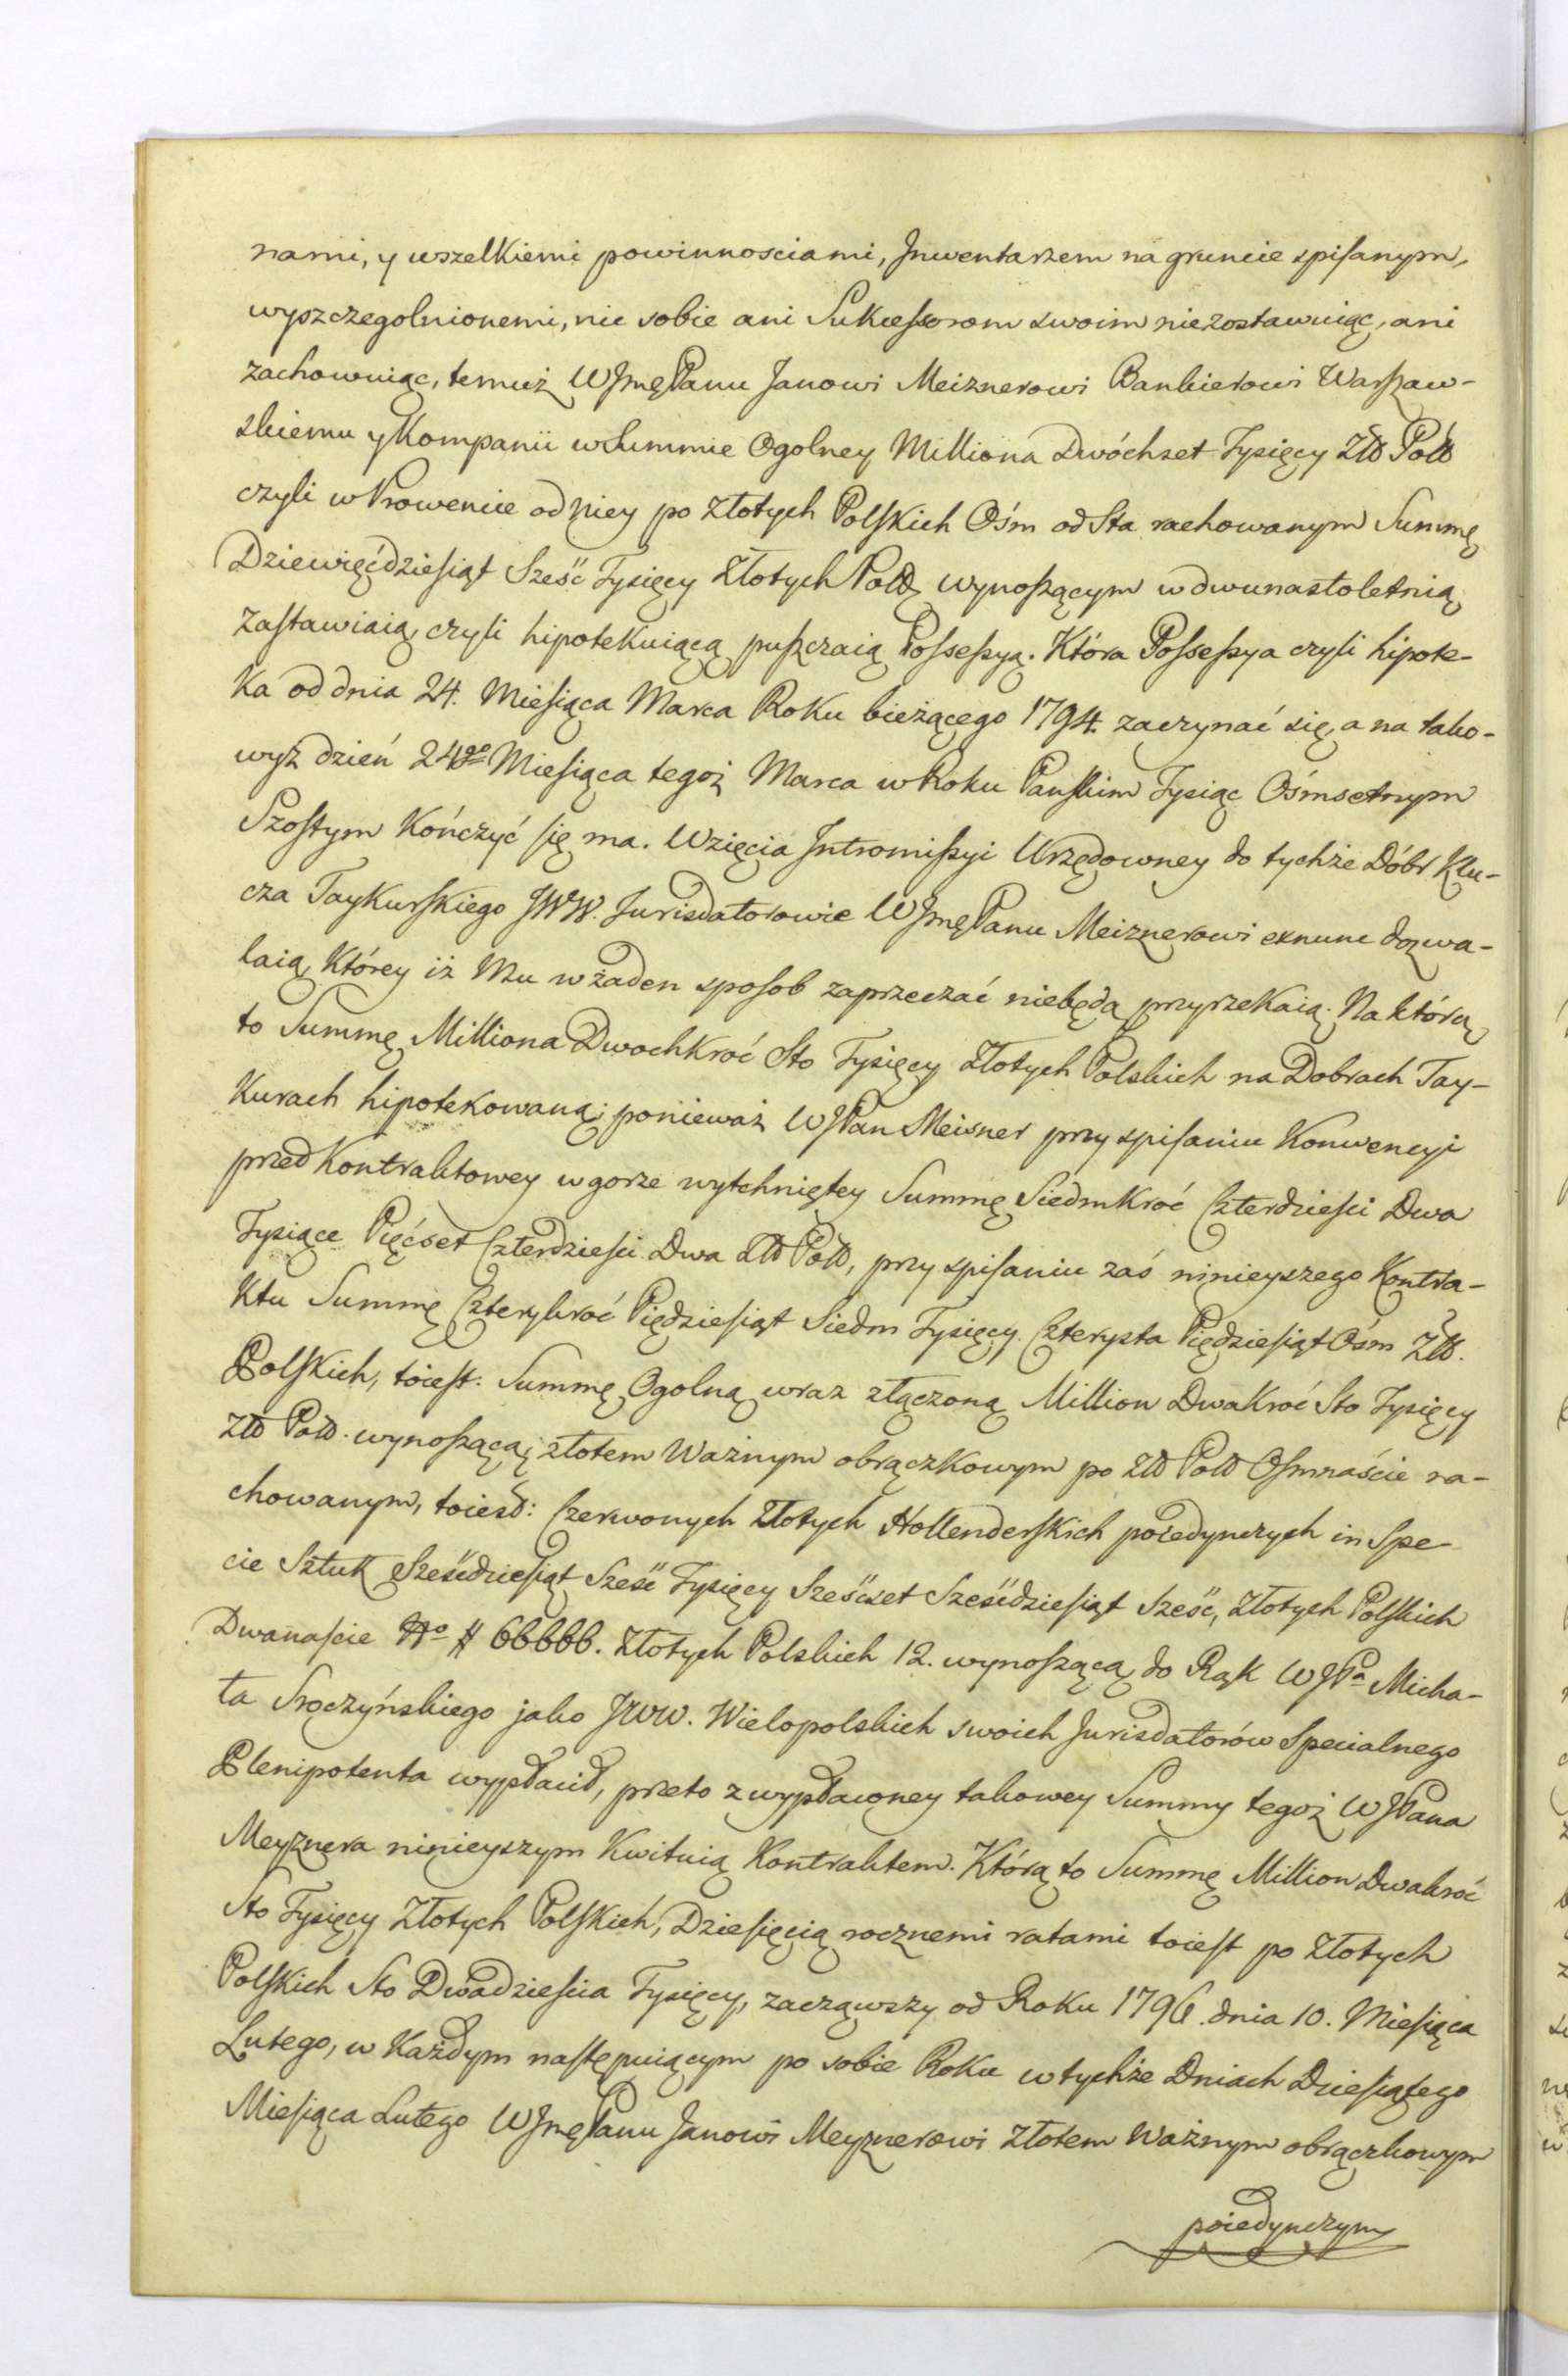 nami, y wszelkiemi powinnosciami, Jnwentarzem na gruncie spisanym,
wyszczegolnionemi, nic sobie ani Sukcessorom swoim niezostawuiąc, ani
zachowuiąc, temuż WJmęPanu Janowi Meiznerowi Bankierowi Warszaw-
skiemu y Kompanii w Summie Ogolney Milliona Dwóchset Tysięcy Złł Poll
czyli w Prowencie od niey po złotych Polskich Ośm od Sta rachowanym Summę
Dziewięćdziesiąt Sześć Tysięcy Złotych Poll wynoszącym w dwunastoletnią
Zastawiaią, czyli hipotekuiącą puszczaią Possessyą. Która Possessya czyli hipote-
ka od dnia 24. Miesiąca Marca Roku bieżącego 1794. zaczynać się, a na tako-
wyż dzień 24go Miesiąca tegoż Marca w Roku Panskim Tysiąc Ośmsetnym
Szostym kończyć się ma. Wzięcia Jntromissyi Urzędowney do tychże Dóbr Klu-
cza Taykurskiego JWW. Jurisdatorowie WJmęPanu Meiznerowi exnunc dozwa-
laią, Którey iż Mu w żaden sposob zaprzeczać niebędą przyrzekaią. Na którą
to Summę Milliona Dwochkroć Sto Tysięcy złotych Polskich na Dobrach Tay-
kurach hipotekowaną; ponieważ WJPan Meisner przy spisaniu Konwencyi
przed Kontraktowey w gorze wytchniętey Summę Siedmkroć Czterdziesci Dwa
Tysiące Pięćset Czterdziesci Dwa Złł Poll, przy spisaniu zaś ninieyszego Kontra-
ktu Summę Czterykroć Pięćdziesiąt Siedm Tysięcy Czterysta Pięćdziesiąt Ośm Złł.
Polskich, toiest: Summę Ogolną wraz złączoną Million Dwakroć Sto Tysięcy
Złł Poll. wynoszącą; złotem Ważnym obrączkowym po Złł Poll Osmnaście ra-
chowanym, toiest: Czerwonych Złotych Hollenderskich poiedynczych in Spe-
cie Sztuk Sześćdziesiąt Sześć Tysięcy Sześćset Sześćdziesiąt Sześć, złotych Polskich
Dwanaście No # 66666. Złotych Polskich 12. wynoszącą do Rąk WJPa Micha-
ła Sroczyńskiego jako JWW. Wielopolskich swoich Jurisdatorów Specialnego
Plenipotenta wypłacił, przeto z wypłaconey takowey Summy tegoż WJPana
Meyznera ninieyszym kwituią Kontraktem. Którą to Summę Million Dwakroć
Sto Tysięcy Złotych Polskich, Dziesięcią rocznemi ratami toiest po złotych
Polskich Sto Dwadziescia Tysięcy, zacząwszy od Roku 1796. dnia 10. Miesiąca
Lutego, w każdym następuiącym po sobie Roku w tychże Dniach Dziesiątego
Miesiąca Lutego WJmęPanu Janowi Meyznerowi złotem Ważnym obrączkowym
poiedynczym